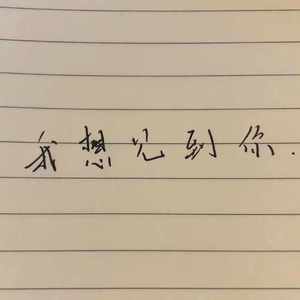 我想见到你.